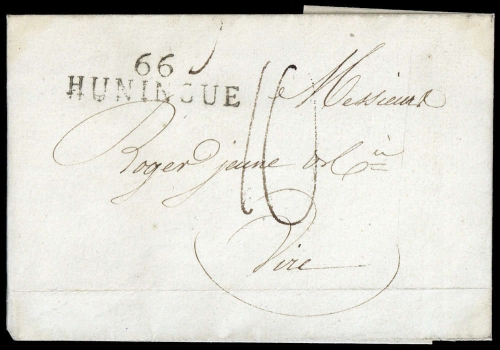 66
HUNINGUE
10
Messieurs
Roger jeune & Cie
Vire